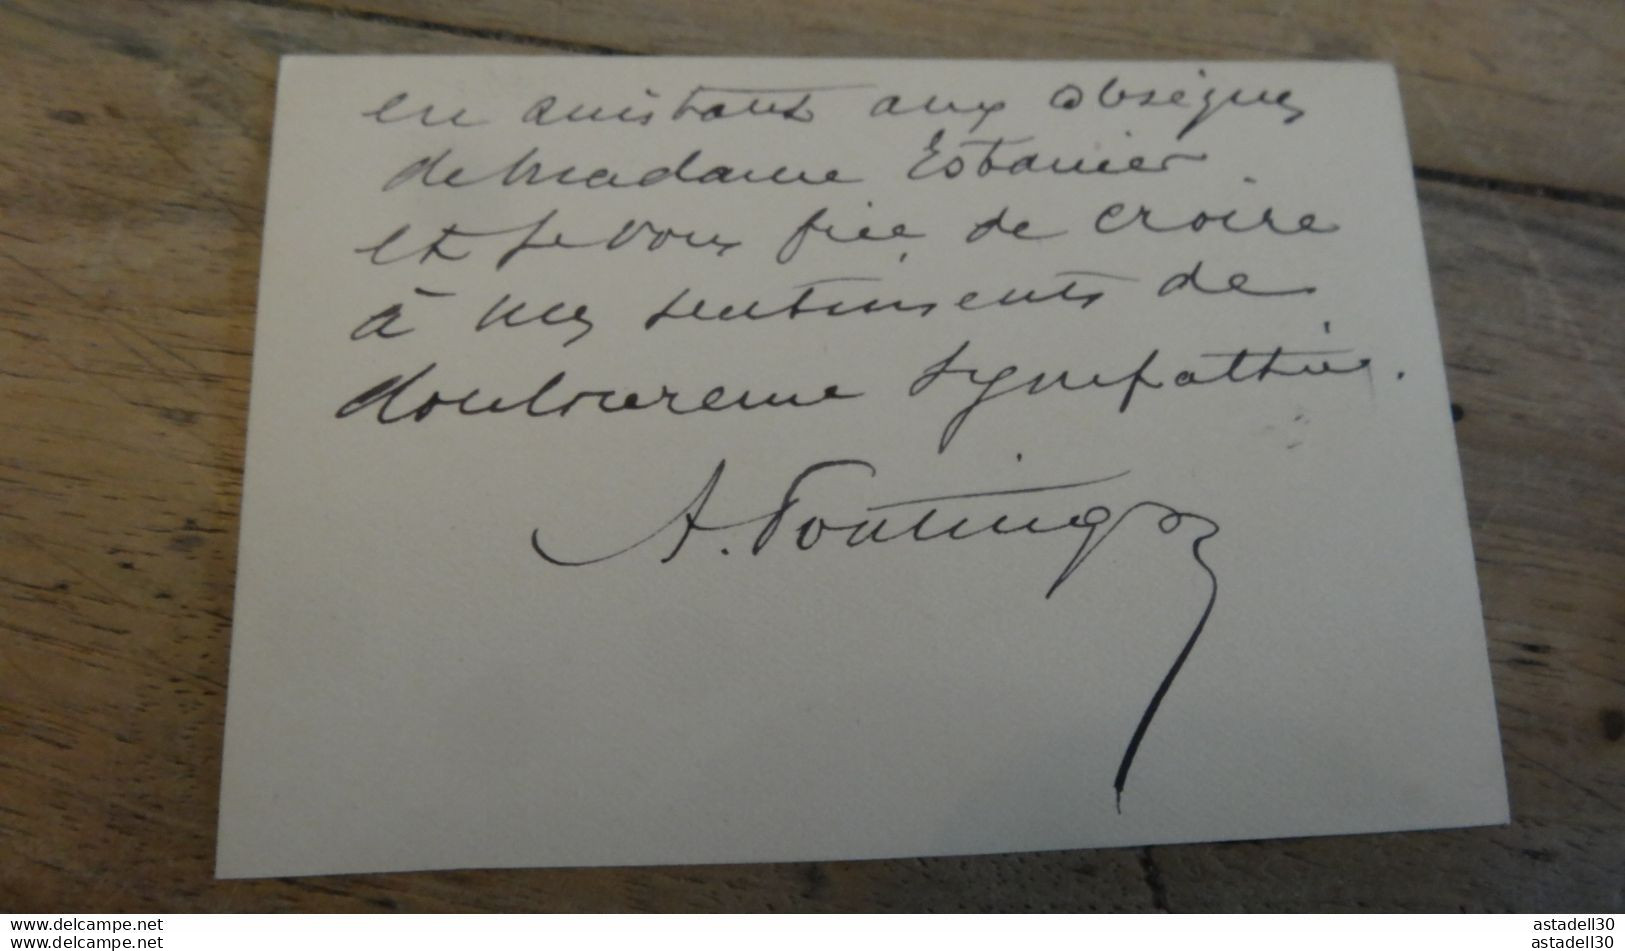 en assistant aux obsèques
de Madame Estaunier
et je vous prie de croire
à mes sentiments de
douloureuse sympathie.
A.
www.delcampe.net
www.delcampe.net
astadell30
astadell30